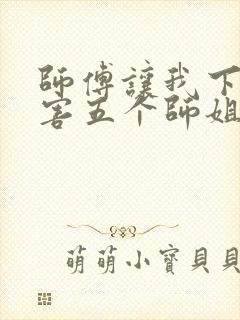 師傅讓我下
害五个師姐
萌萌小寶貝貝